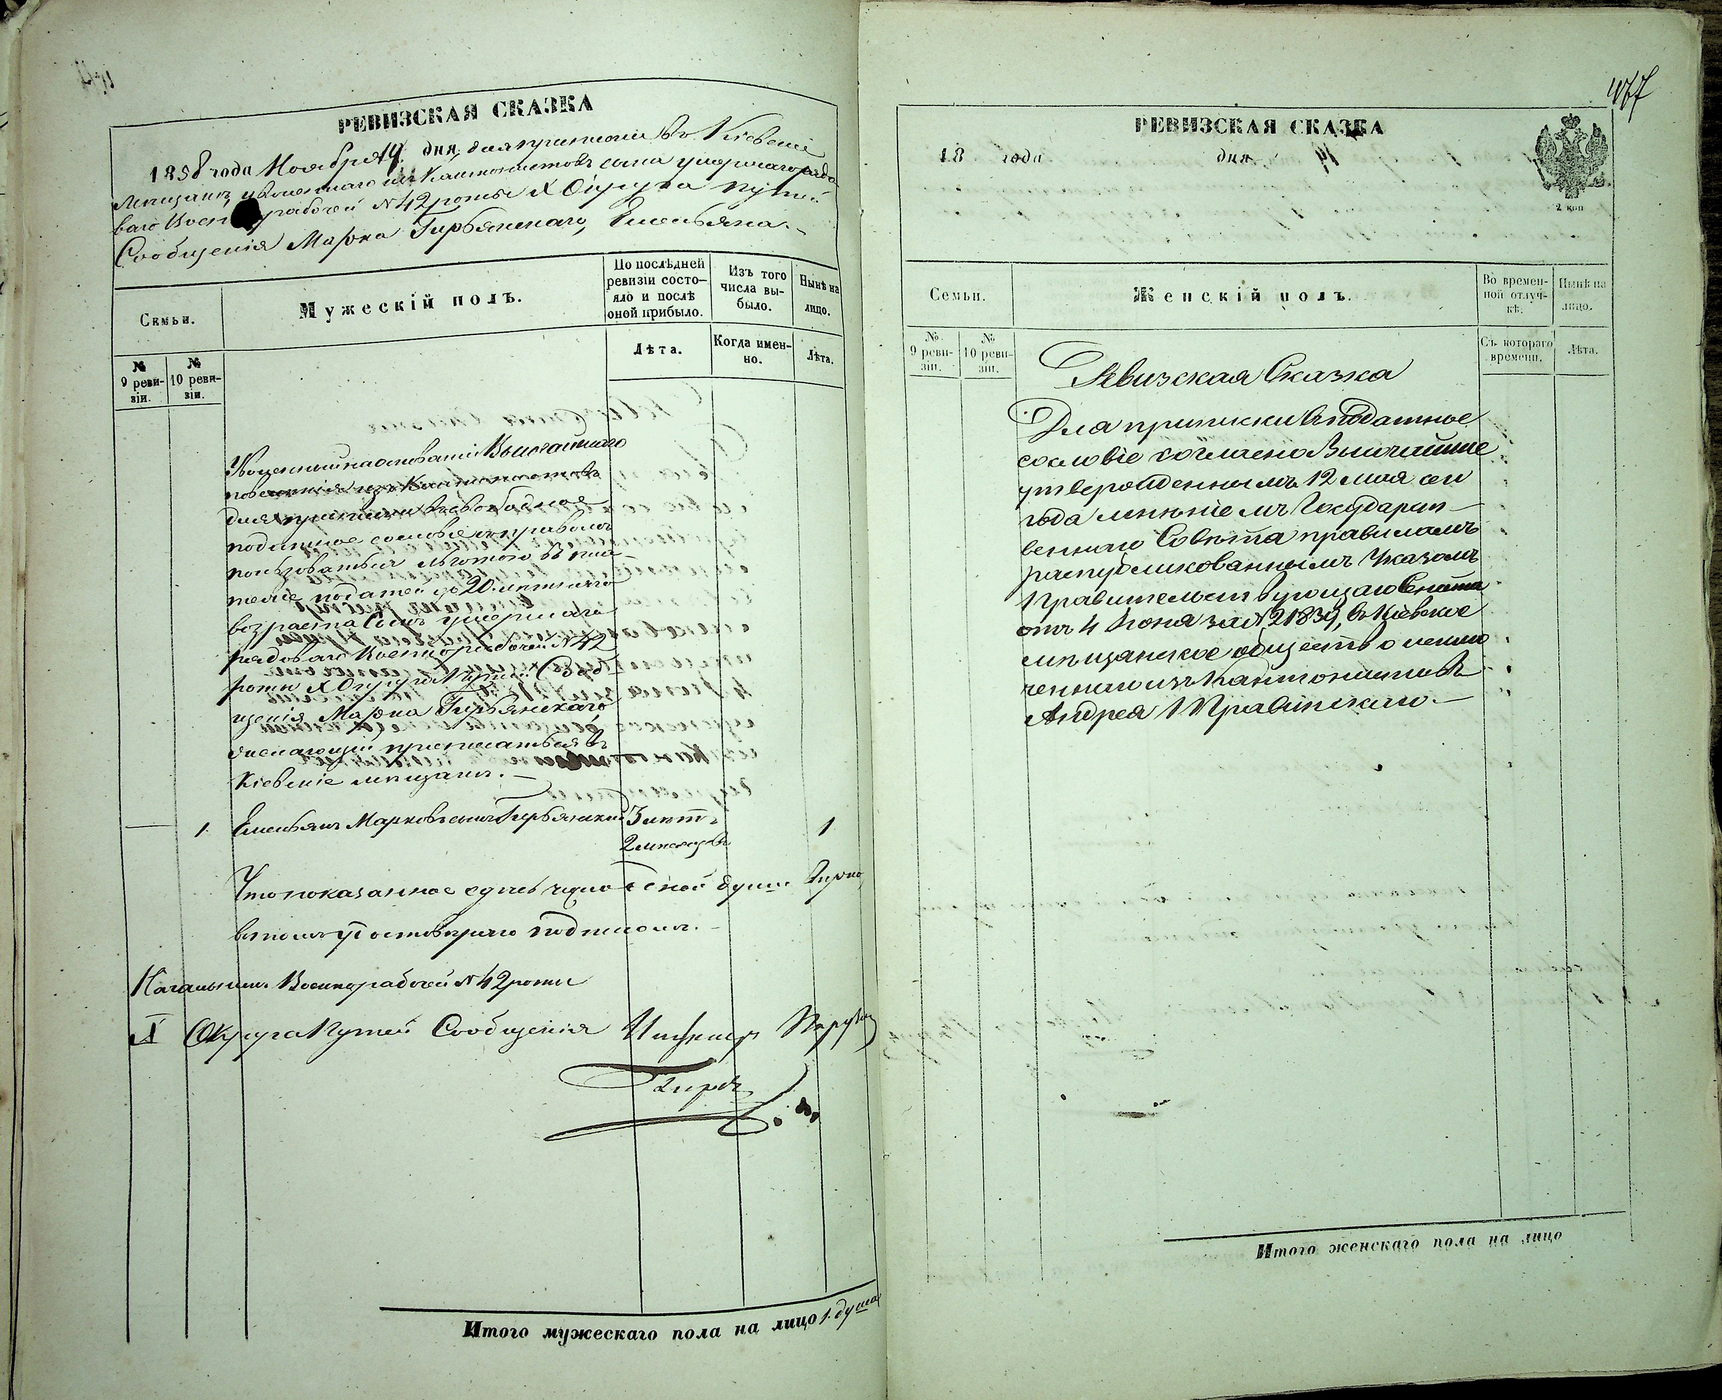 РЕВИЗСКАЯ СКАЗКА
1858 года Ноября 19 дня для приписки въ Кіевскіе
Мещане, уволеннаго изъ Кантонистовъ сына умершаго рядо
ваго Военно рабочей № 42 роты X Округа Путей
Сообщенія Марка Гирбянскаго, Емельяна.
Семьи.
Мужескій полъ.
По послѣдней ревизіи состо-яло и послѣ оной прибыло.
Изъ того числа вы-было.
Нынѣ на лицо.
№ 9 реви-зіи.
№ 10 реви-зіи.
Лѣта.
Когда имен-но.
Лѣта.
Уволенный на основаніи Высочайшаго
повеленія изъ Кантонистовъ
для приписки въ свободное
податное сословіе съ правомъ
пользоваться льготою въ пла
теже податей до 20 летняго
возраста Сынъ умершаго
рядоваго Военно рабочей № 42
роты X Округа Путей Сооб
щенія Марка Гирбянскаго
желающій приписаться въ
Кіевскіе мещане.
1 Емельянъ Марковъ сынъ Гирбянскій 3 летъ 1
2 месяцевъ
Что показанное здесь число одной души верно,
въ томъ удостоверяю подписомъ.
Начальникъ Военно рабочей № 42 роты
X Округа Путей Сообщенія Инженер
Итого мужескаго пола на лицо 1. душа
477
РЕВИЗСКАЯ СКАЗКА
18 года дня
2 коп
Семьи.
Женскій полъ.
Во времен-ной отлуч-кѣ.
Нынѣ на лицо.
№ 9 реви-зіи.
№ 10 реви-зіи.
Съ котораго времени.
Лѣта.
Ревизская Сказка
Для приписки въ податное
сословіе согласно Высочайше
утвержденнымъ 12 мая сего
года мненіемъ Государст
веннаго Совѣта правиламъ
распубликованнымъ Указомъ
Правительствующаго Сената
отъ 4 Іюня за № 21839, въ Кіевское
мещанское общество исклю
ченнаго изъ Кантонистовъ
Андрея
Итого женскаго пола на лицо